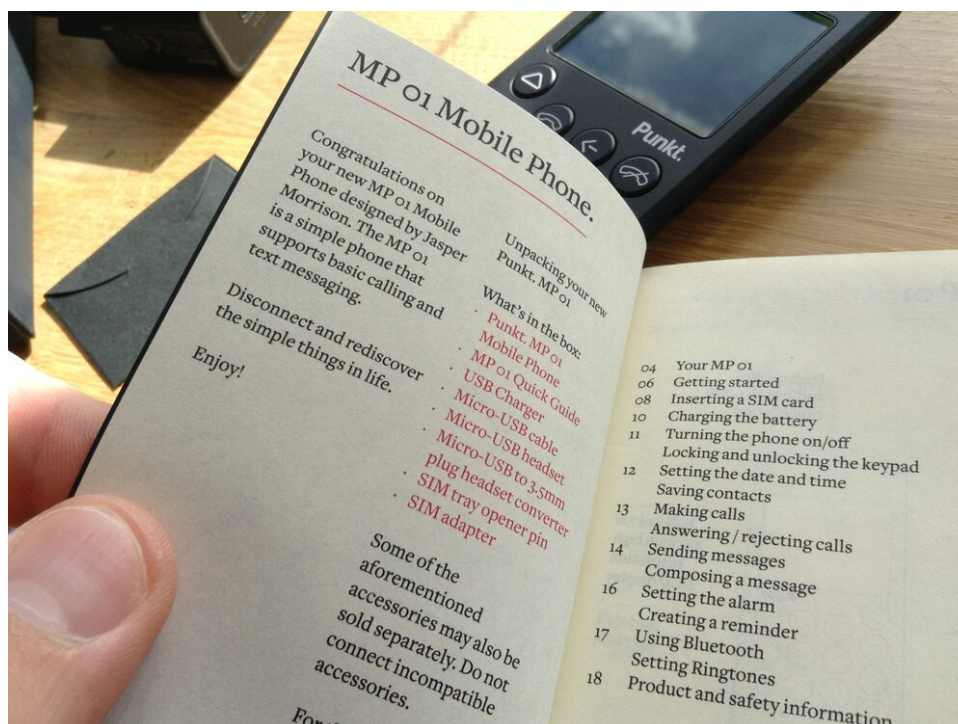 MP 01 Mobile Phone.
Congratulations on
your new MP 01 Mobile
Phone designed by Jasper
Morrison. The MP 01
is a simple phone that
supports basic calling and
text messaging.
Disconnect and rediscover
the simple things in life.
Enjoy!
Unpacking your new
Punkt. MP 01
What's in the box:
· Punkt. MP 01
Mobile Phone
· MP 01 Quick Guide
· USB Charger
· Micro-USB cable
· Micro-USB headset
· Micro-USB to 3.5mm
plug headset converter
· SIM tray opener pin
· SIM adapter
Some of the
aforementioned
accessories may also be
sold separately. Do not
connect incompatible
accessories.
Punkt.
04 Your MP 01
06 Getting started
08 Inserting a SIM card
10 Charging the battery
11 Turning the phone on/off
Locking and unlocking the keypad
12 Setting the date and time
Saving contacts
13 Making calls
Answering / rejecting calls
14 Sending messages
Composing a message
16 Setting the alarm
Creating a reminder
17 Using Bluetooth
Setting Ringtones
18 Product and safety information